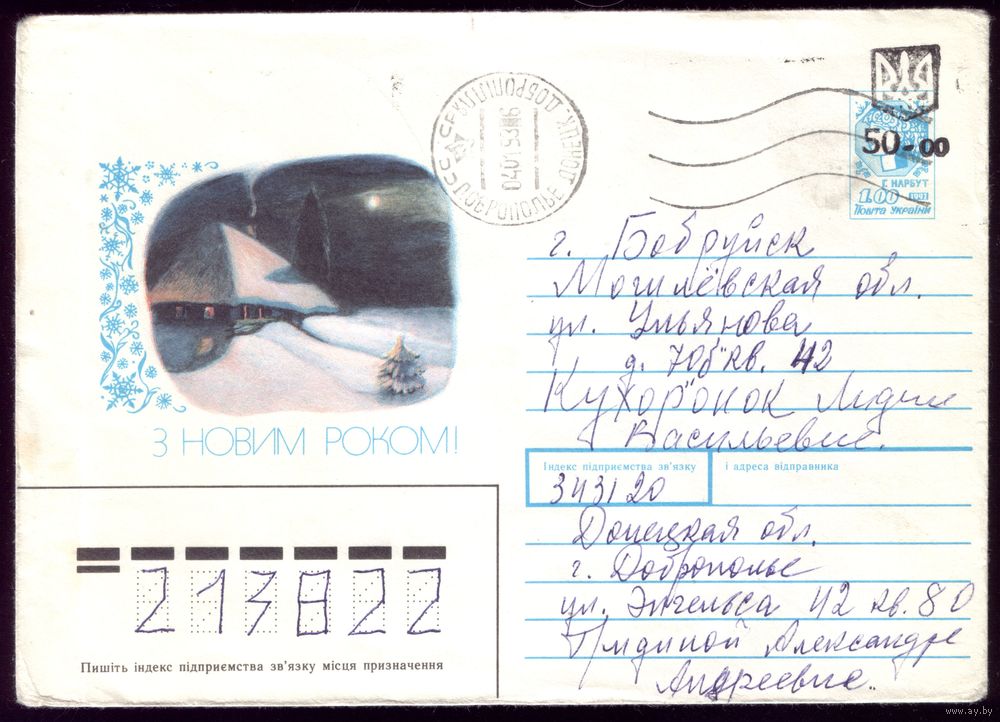 УССР ДОНЕЦК. ДОБРОПОЛЬЕ
ДОБРОПІЛЛЯ
040193
50-00
Г. НАРБУТ
1.00
ПОШТА УКРАЇНИ
г. Бобруйск
Могилёвская обл.
ул. Ульянова
д. 70"б" кв. 42
Лидии
Васильевне.
З НОВИМ РОКОМ!
Індекс підприємства зв'язку і адреса відправника
343120
Донецкая обл.
г. Доброполье
ул. Энгельса 42 кв. 80
Александре
Андреевне.
213822
Пишіть індекс підприємства зв'язку місця призначення
www.ay.by